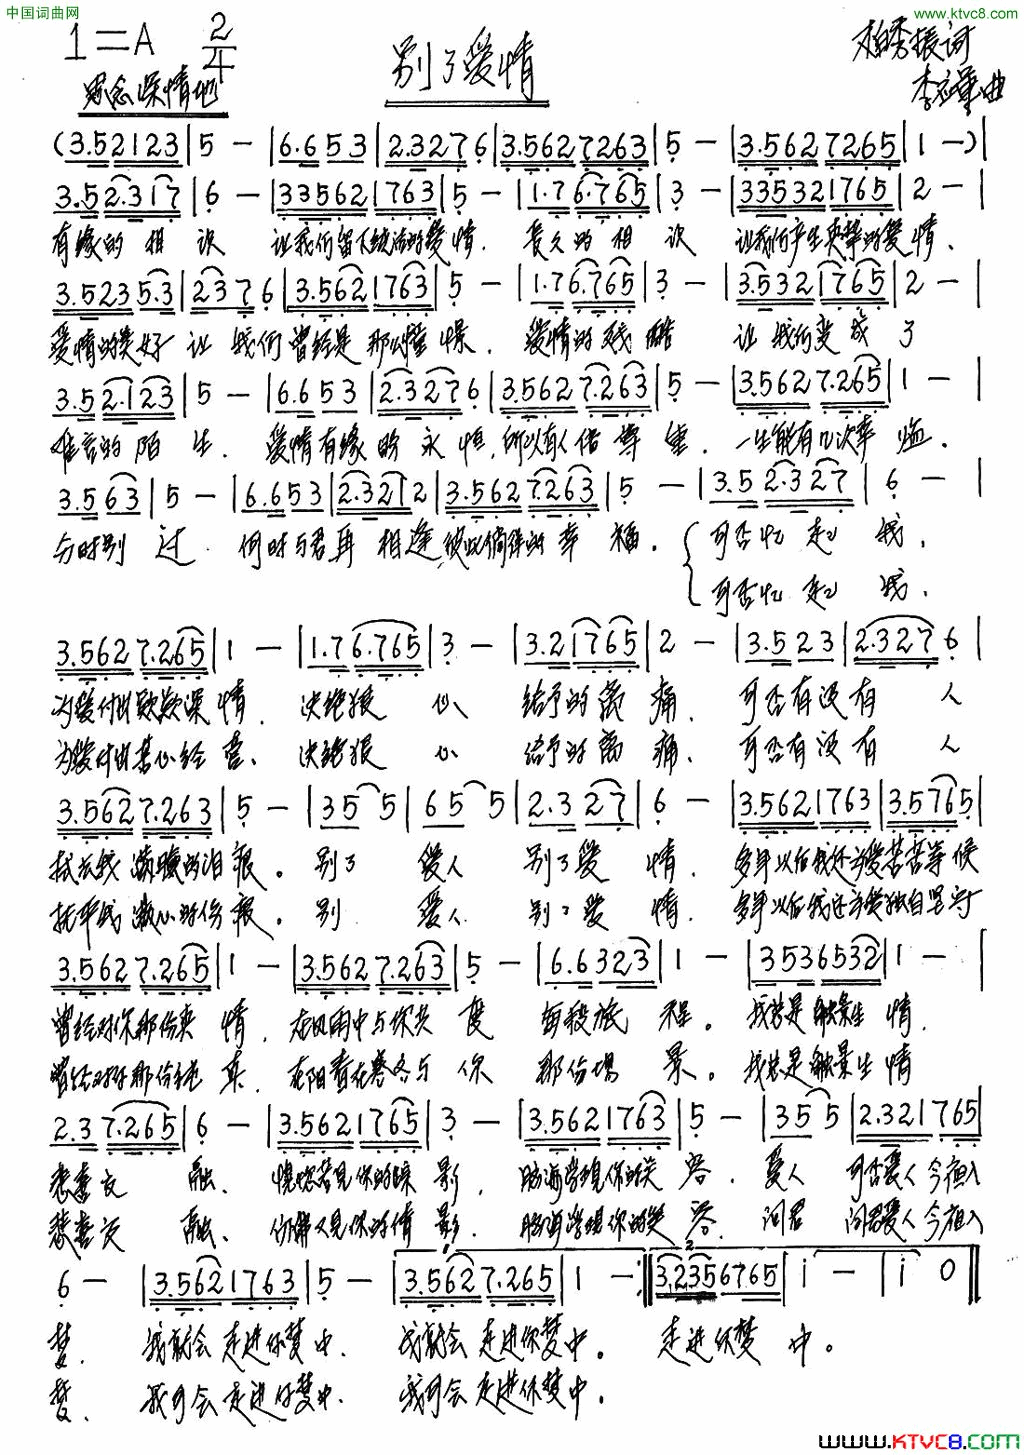 中国词曲网
www.ktvc8.com
1=A 2/4
别了爱情
柏秀振词
李 曲
思念深情地
(3.52123|5 -|6.653|2.3276|3.5627263|5 -|3.5627265|1 -)|
3.52.317|6 -|335621763|5 -|1.76.765|3 -|335321765|2 -|
有缘的相识 让我们留下 的爱情. 长久的相识 让我们产生 的爱情、
3.5235.3|2376|3.5621763|5 -|1.76.765|3 -|3.5321765|2 -|
爱情的美好让我们曾经是那么憧憬. 爱情的残酷 让我们变成了
3.52.123|5 -|6.653|2.3276|3.5627.263|5 -|3.5627.265|1 -|
难言的陌生. 爱情有缘的永恒,所以有人 . 一生能有几次幸 .
3.563|5 -|6.653|2.3212|3.5627.263|5 -|3.52.327|6 -|
何时与君再相逢 的幸福.
可否忆起我.
可否忆起我.
3.5627.265|1 -|1.76.765|3 -|3.21765|2 -|3.523|2.3276|
为爱付出款款深情. 决绝狠心 给予的离痛. 可否有没有人
为爱付出苦心经营、决绝狠心 给予的离痛. 可否有没有人
3.5627.263|5 -|355|655|2.327|6 -|3.5621763|3.5765|
拭去我满腹的泪痕。别了爱人 别了爱情. 多年以后我还为爱苦苦等候
抚平我 心的伤痕。别 爱人 别了爱情. 多年以后我还为爱独自坚守
3.5627.265|1 -|3.5627.263|5 -|6.6323|1 -|3536532|1 -|
曾经对你那份真情. 在风雨中与你共度每段旅程。我总是触景生情.
曾经对你那份纯真. 在 与你那份场景。我总是触景生情
2.37.265|6 -|3.5621765|3 -|3.5621763|5 -|355|2.321765|
悲喜交融、恍惚若见你的踪影, 脑海浮现你的笑容. 爱人 可否爱人今夜入
悲喜交融、仿佛又见你的倩影. 脑海浮现你的笑容. 问君 问君爱人今夜入
6 -|3.5621763|5 -|3.5627.265|1 - :‖3.2356765|i -|i 0‖
梦. 我就会走进你梦中. 我就会走进你梦中。走进你梦中。
梦. 我可会走进你梦中. 我可会走进你梦中。
www.KTVC8.com